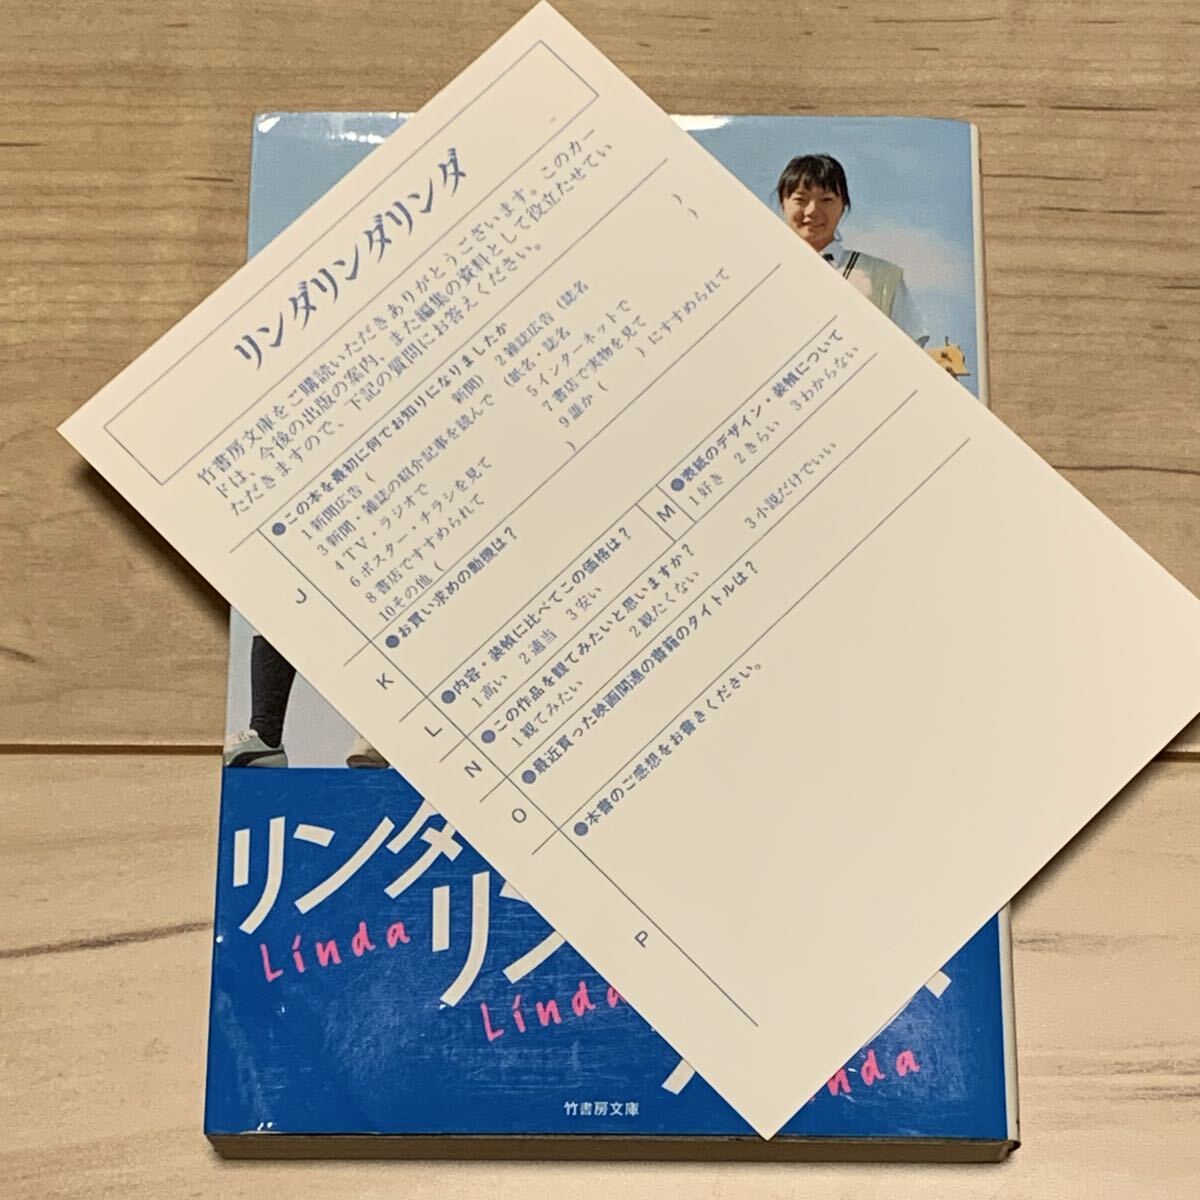 リンダリンダリンダ
竹書房文庫をご購読いただきありがとうございます。このカー
ドは、今後の出版の案内、また編集の資料として役立たせてい
ただきますので、下記の質問にお答えください。
J
●この本を最初に何でお知りになりましたか
1新聞広告(　　　新聞)　2雑誌広告(誌名　　　)
3新聞・雑誌の紹介記事を読んで(紙名・誌名　　　)
4TV・ラジオで　5インターネットで
6ポスター・チラシを見て　7書店で実物を見て
8書店ですすめられて　9誰か(　　　)にすすめられて
10その他(　　　)
K
●お買い求めの動機は？
L
●内容・装幀に比べてこの価格は？
1高い　2適当　3安い
M
●表紙のデザイン・装幀について
1好き　2きらい　3わからない
N
●この作品を観てみたいと思いますか？
1観てみたい　2観たくない　3小説だけでいい
O
●最近買った映画関連の書籍のタイトルは？
P
●本書のご感想をお書きください。
リンダ
Linda
リン
Linda
nda
竹書房文庫